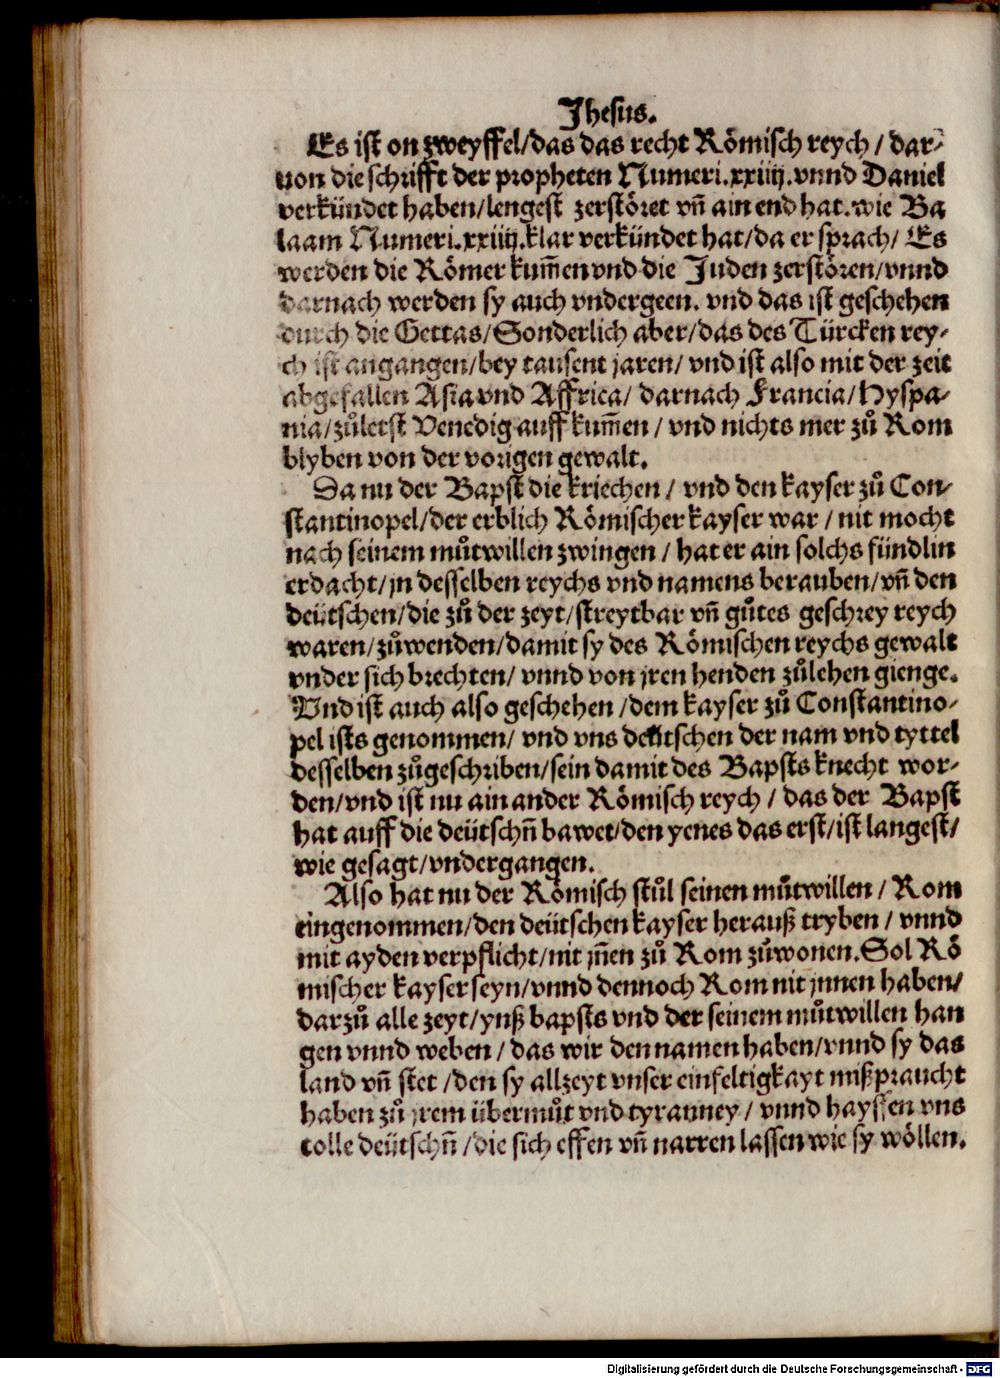 Jhesus.
Es ist on zweyffel/das das recht Römisch reych/ dar-
uon die schrifft der propheten Numeri.xxiiij.vnnd Daniel
verkündet haben/lengest zerstöret vn̄ ain end hat.wie Ba
laam Numeri.xxiiij.klar verkündet hat/da er sprach/ Es
werden die Römer kum̄en vnd die Juden zerstören/vnnd
darnach werden sy auch vndergeen. vnd das ist geschehen
durch die Gettas/Sonderlich aber/das des Türcken rey-
ch ist angangen/bey tausent jaren/ vnd ist also mit der zeit
abgefallen Asia vnd Affrica/ darnach Francia/Hyspa-
nia/zůletst Venedig auff kum̄en/ vnd nichts mer zů Rom
blyben von der vorigen gewalt.
Da nu der Bapst die kriechen/ vnd den kayser zů Con-
stantinopel/der erblich Römischer kayser war/ nit mocht
nach seinem můtwillen zwingen/ hat er ain solchs fündlin
erdacht/jn desselben reychs vnd namens berauben/vn̄ den
deütschen/die zů der zeyt/streytbar vn̄ gůtes geschrey reych
waren/zůwenden/damit sy des Römischen reychs gewalt
vnder sich brechten/ vnnd von jren henden zůlehen gienge.
Vnd ist auch also geschehen/dem kayser zů Constantino-
pel ists genommen/ vnd vns deütschen der nam vnd tyttel
desselben zůgeschriben/sein damit des Bapsts knecht wor-
den/vnd ist nu ain ander Römisch reych/ das der Bapst
hat auff die deütschn̄ bawet/den yenes das erst/ist langest/
wie gesagt/vndergangen.
Also hat nu der Römisch stůl seinen můtwillen/ Rom
eingenommen/den deütschen kayser herauß tryben/ vnnd
mit ayden verpflicht/nit jn̄en zů Rom zůwonen.Sol Rö
mischer kayser seyn/vnnd dennoch Rom nit jnnen haben/
darzů alle zeyt/ynß bapsts vnd der seinem můtwillen han
gen vnnd weben/ das wir den namen haben/vnnd sy das
land vn̄ stet/den sy allzeyt vnser einfeltigkayt mißpraucht
haben zů jrem übermůt vnd tyranney/ vnnd hayssen vns
tolle deütschn̄/die sich effen vn̄ narren lassen wie sy wöllen.
Digitalisierung gefördert durch die Deutsche Forschungsgemeinschaft - DFG